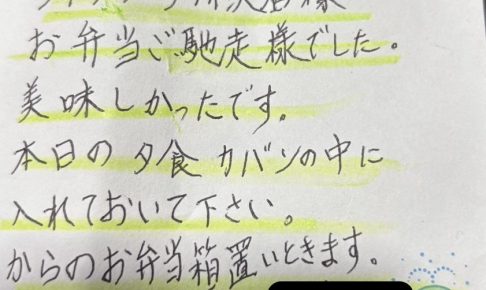 お弁当ご馳走様でした。
美味しかったです。
本日の夕食カバンの中に
入れておいて下さい。
からのお弁当箱置いときます。